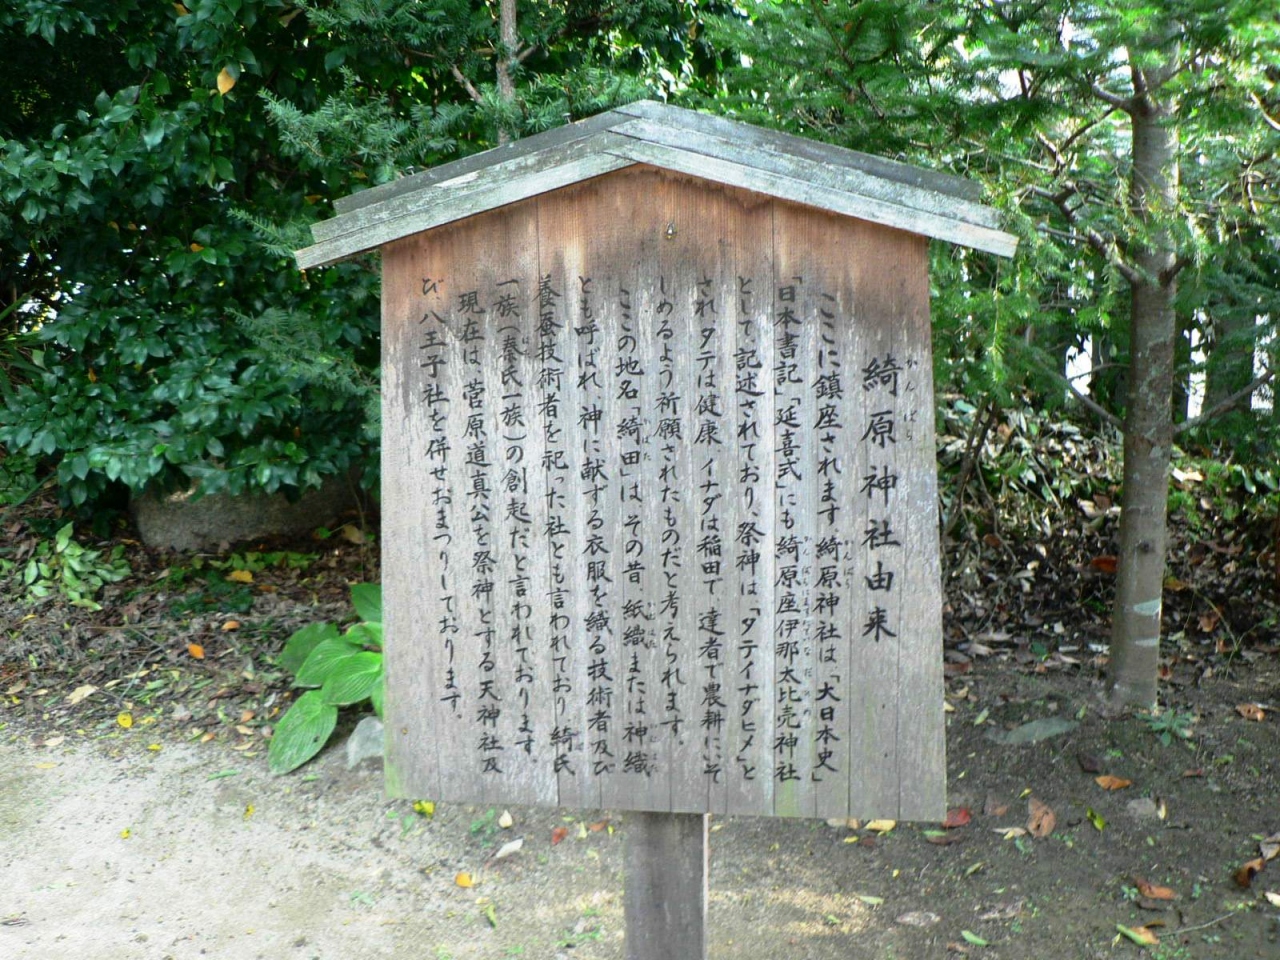 綺原神社由来
ここに鎮座されます、綺原神社は、「大日本史」
「日本書記」「延喜式」にも綺原座伊那太比売神社
として、記述されており、祭神は、「タテイナダヒメ」と
され、タテは健康、イナダは稲田で、達者で農耕にいそ
しめるよう祈願されたものだと考えられます。
ここの地名「綺田」は、その昔、紙織または神織
とも呼ばれ、神に献ずる衣服を織る技術者及び
養蚕技術者を祀った社とも言われており、綺氏
一族（秦氏一族）の創起だと言われております。
現在は、菅原道真公を祭神とする天神社及
び、八王子社を併せおまつりしております。